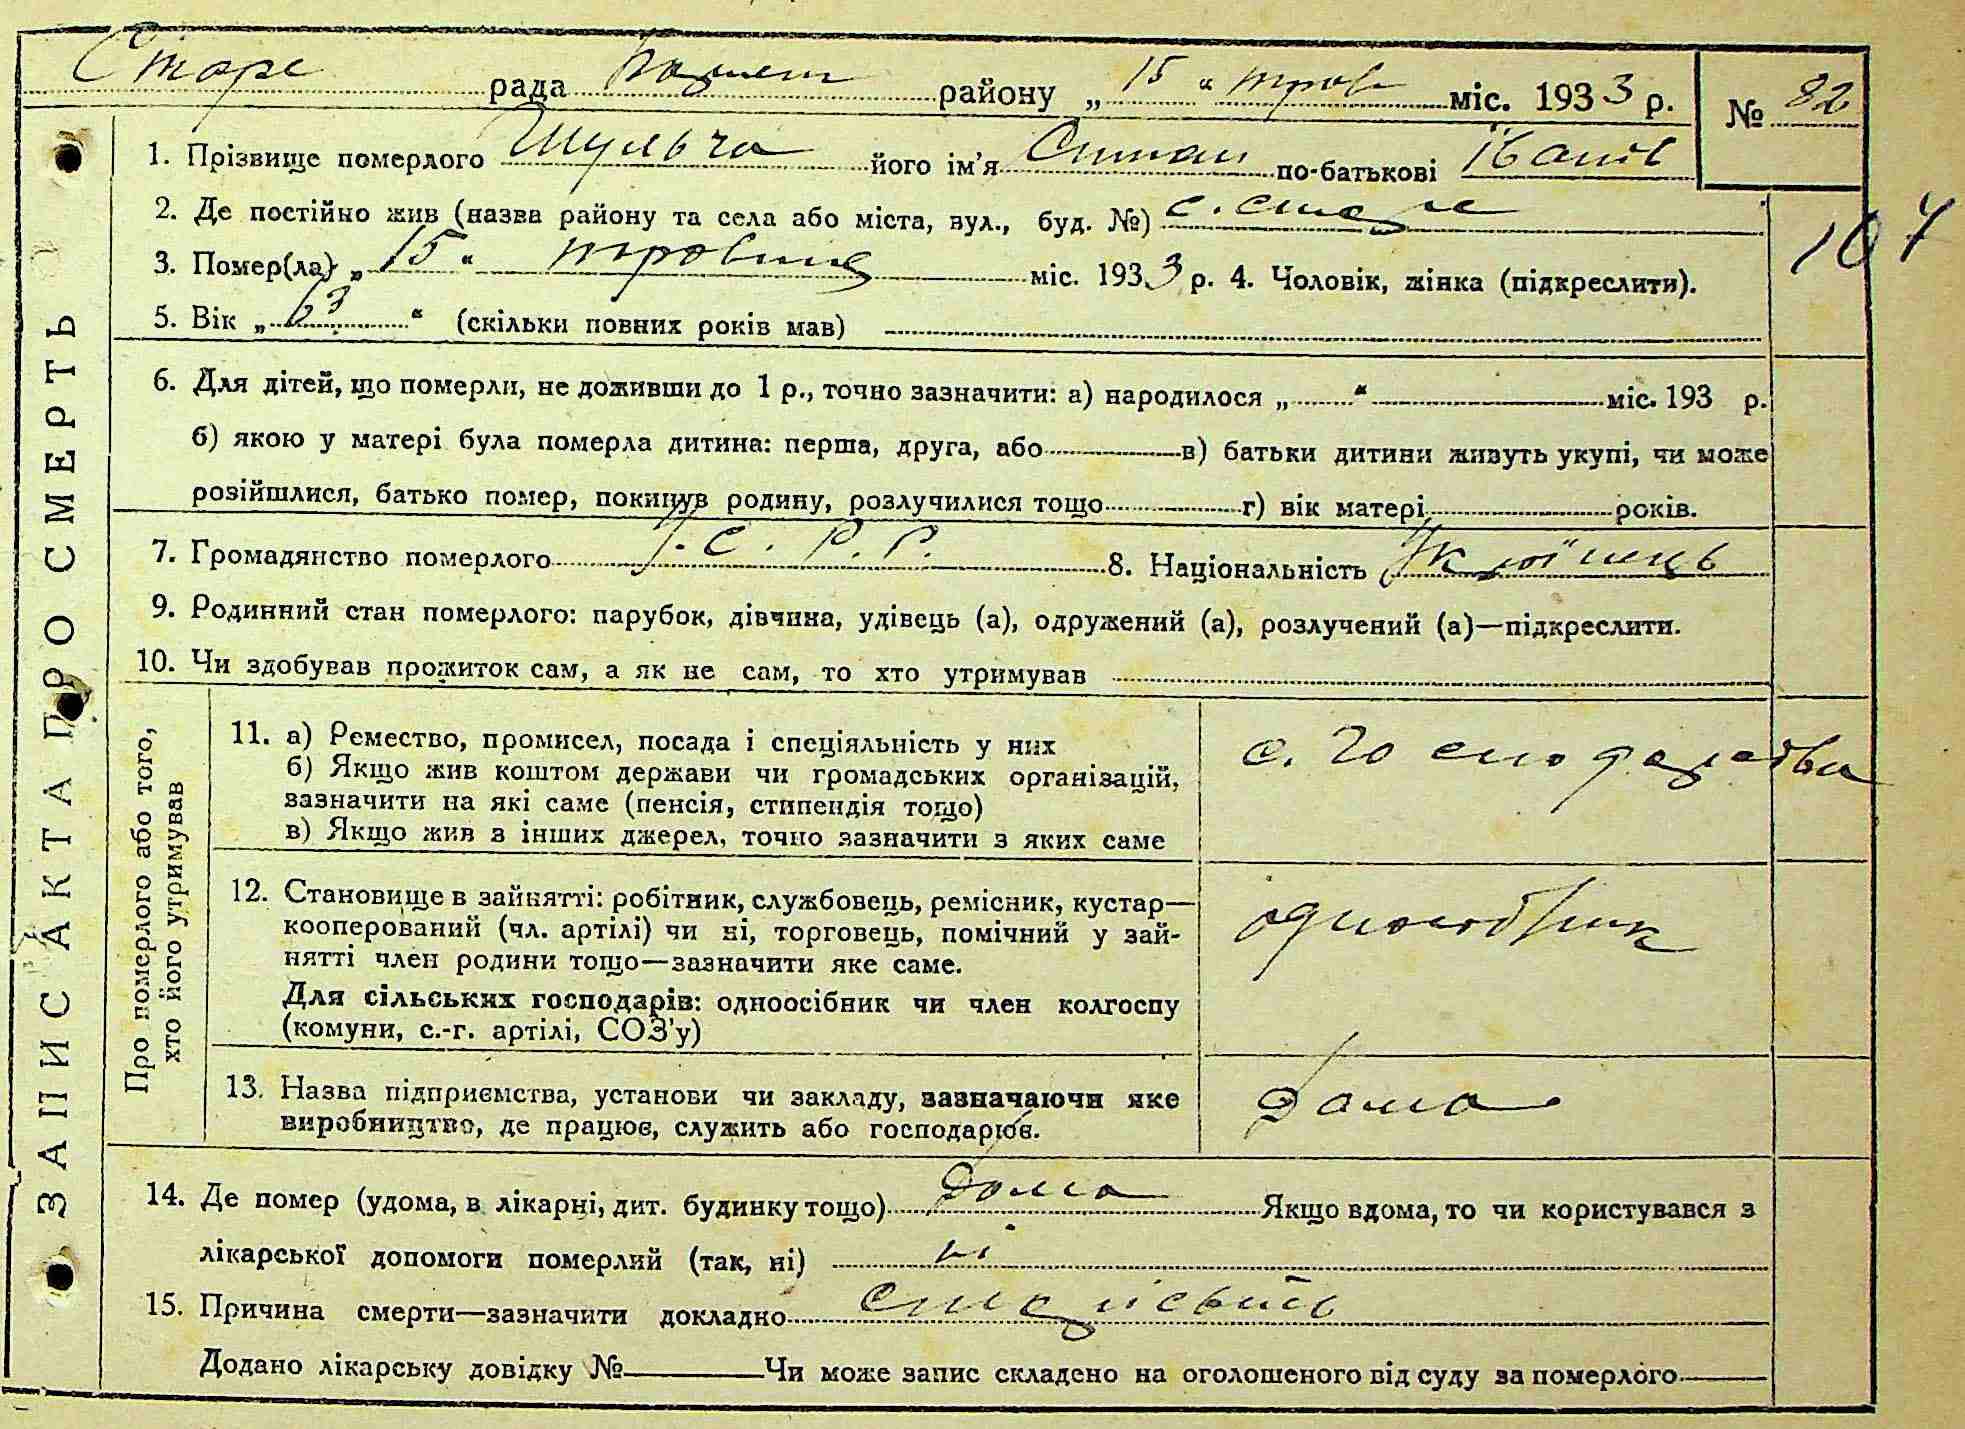 Старе рада район у „ 15 “ трав міс. 1933 р. № 82
1. Прізвище померлого Шульга його ім’я Степан по-батькові Іванів
107
2. Де постійно жив (назва району та села або міста, вул., буд. №) с. Старе
3. Помер(ла) „ 15 “ травня міс. 1933 р. 4. Чоловік, жінка (підкреслити).
5. Вік „ 63 “ (скільки повних років мав)
6. Для дітей, що померли, не доживши до 1 р., точно зазначити: а) народилося „ “ міс. 193 р.
б) якою у матері була померла дитина: перша, друга, або в) батьки дитини живуть укупі, чи може
розійшлися, батько помер, покинув родину, розлучилися тощо г) вік матері років.
7. Громадянство померлого У.С.Р.Р. 8. Національність Українець
9. Родинний стан померлого: парубок, дівчина, удівець (а), одружений (а), розлучений (а)—підкреслити.
10. Чи здобував прожиток сам, а як не сам, то хто утримував
ЗАПИС АКТА ПРО СМЕРТЬ
Про померлого або того,
хто його утримував
11. а) Ремество, промисел, посада і спеціяльність у них
б) Якщо жив коштом держави чи громадських організацій,
зазначити на які саме (пенсія, стипендія тощо)
в) Якщо жив з інших джерел, точно зазначити з яких саме
с. господарства
12. Становище в зайнятті: робітник, службовець, ремісник, кустар—
кооперований (чл. артілі) чи ні, торговець, помічний у зай-
нятті член родини тощо—зазначити яке саме.
Для сільських господарів: одноосібник чи член колгоспу
(комуни, с.-г. артілі, СОЗ’у)
одноосібник
13. Назва підприємства, установи чи закладу, зазначаючи яке
виробництво, де працює, служить або господарює.
дома
14. Де помер (удома, в лікарні, дит. будинку тощо) дома Якщо вдома, то чи користувався з
лікарської допомоги померлий (так, ні) ні
15. Причина смерти—зазначити докладно старість
Додано лікарську довідку № Чи може запис складено на оголошеного від суду за померлого